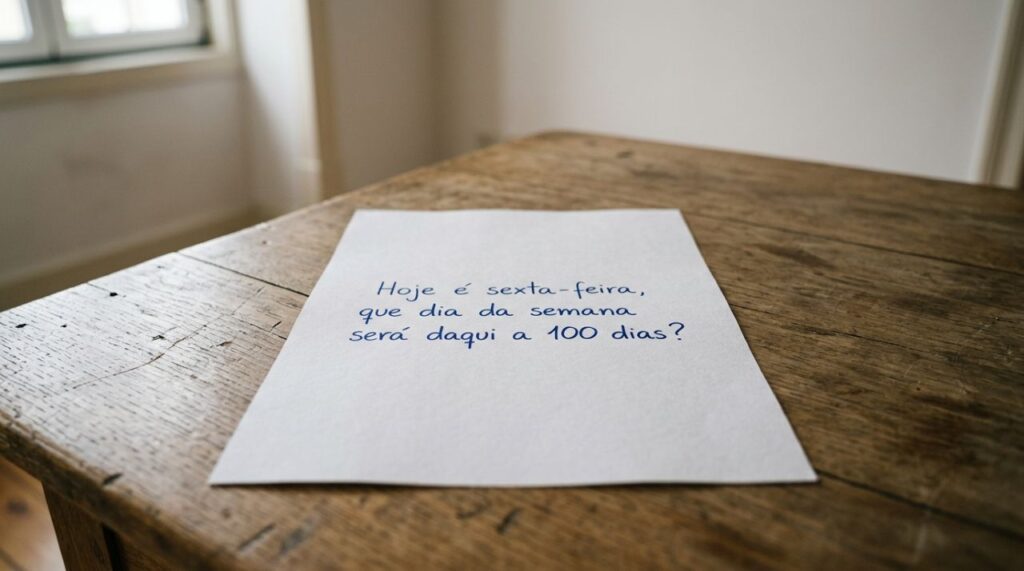 Hoje é sexta-feira,
que dia da semana
será daqui a 100 dias?